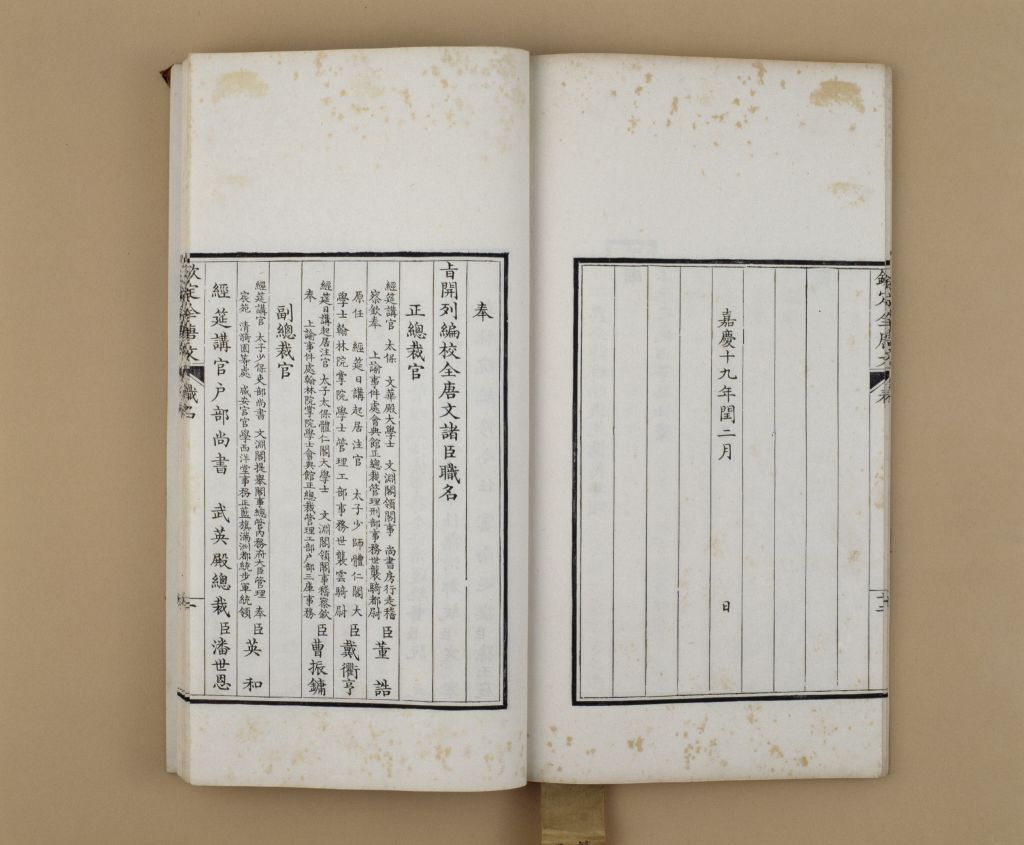 嘉慶十九年閏二月 日
奉
旨開列編校全唐文諸臣職名
正總裁官
經筵講官 太保 文華殿大學士 文淵閣領閣事 尚書房行走稽
察欽奉 上諭事件處會典館正總裁管理刑部事務世襲騎都尉 臣董誥
原任 經筵日講起居注官 太子少師體仁閣大
學士翰林院掌院學士管理工部事務世襲雲騎尉 臣戴衢亨
經筵日講起居注官 太子太保體仁閣大學士 文淵閣領閣事稽察欽
奉 上諭事件處翰林院掌院學士會典館正總裁管理工部戶部三庫事務 臣曹振鏞
副總裁官
經筵講官 太子少保吏部尚書 文淵閣提舉閣事總管內務府大臣管理 奉
宸苑 清漪園等處 咸安宮官學西洋堂事務正藍旗滿洲都統步軍統領 臣英和
經筵講官戶部尚書 武英殿總裁 臣潘世恩
欽定全唐文 職名